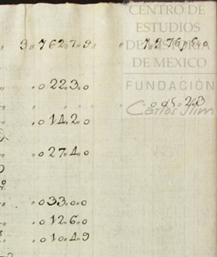 CENTRO DE
ESTUDIOS
DE HISTORIA
DE MEXICO
FUNDACIÓN
Carlos Slim
9.762.7.9
.022.3.0
.014.2.0
.027.4.0
.033.0.0
.012.6.0
.010.4.9